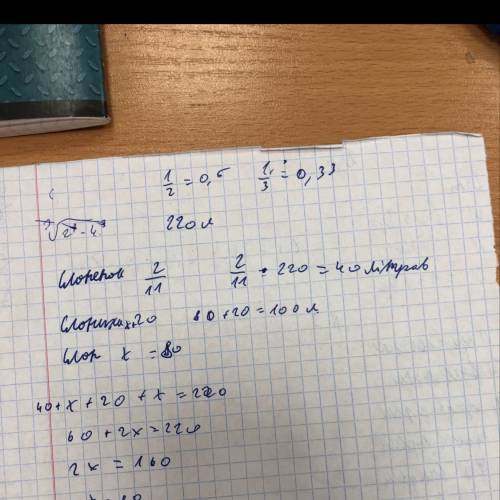 1/2 = 0,5 1/3 = 0,33
220 л
Слоненя 2/11 2/11 · 220 = 40 літрав
Слониха x+20 80 + 20 = 100 л
Слон x = 80
40 + x + 20 + x = 220
60 + 2x = 220
2x = 160